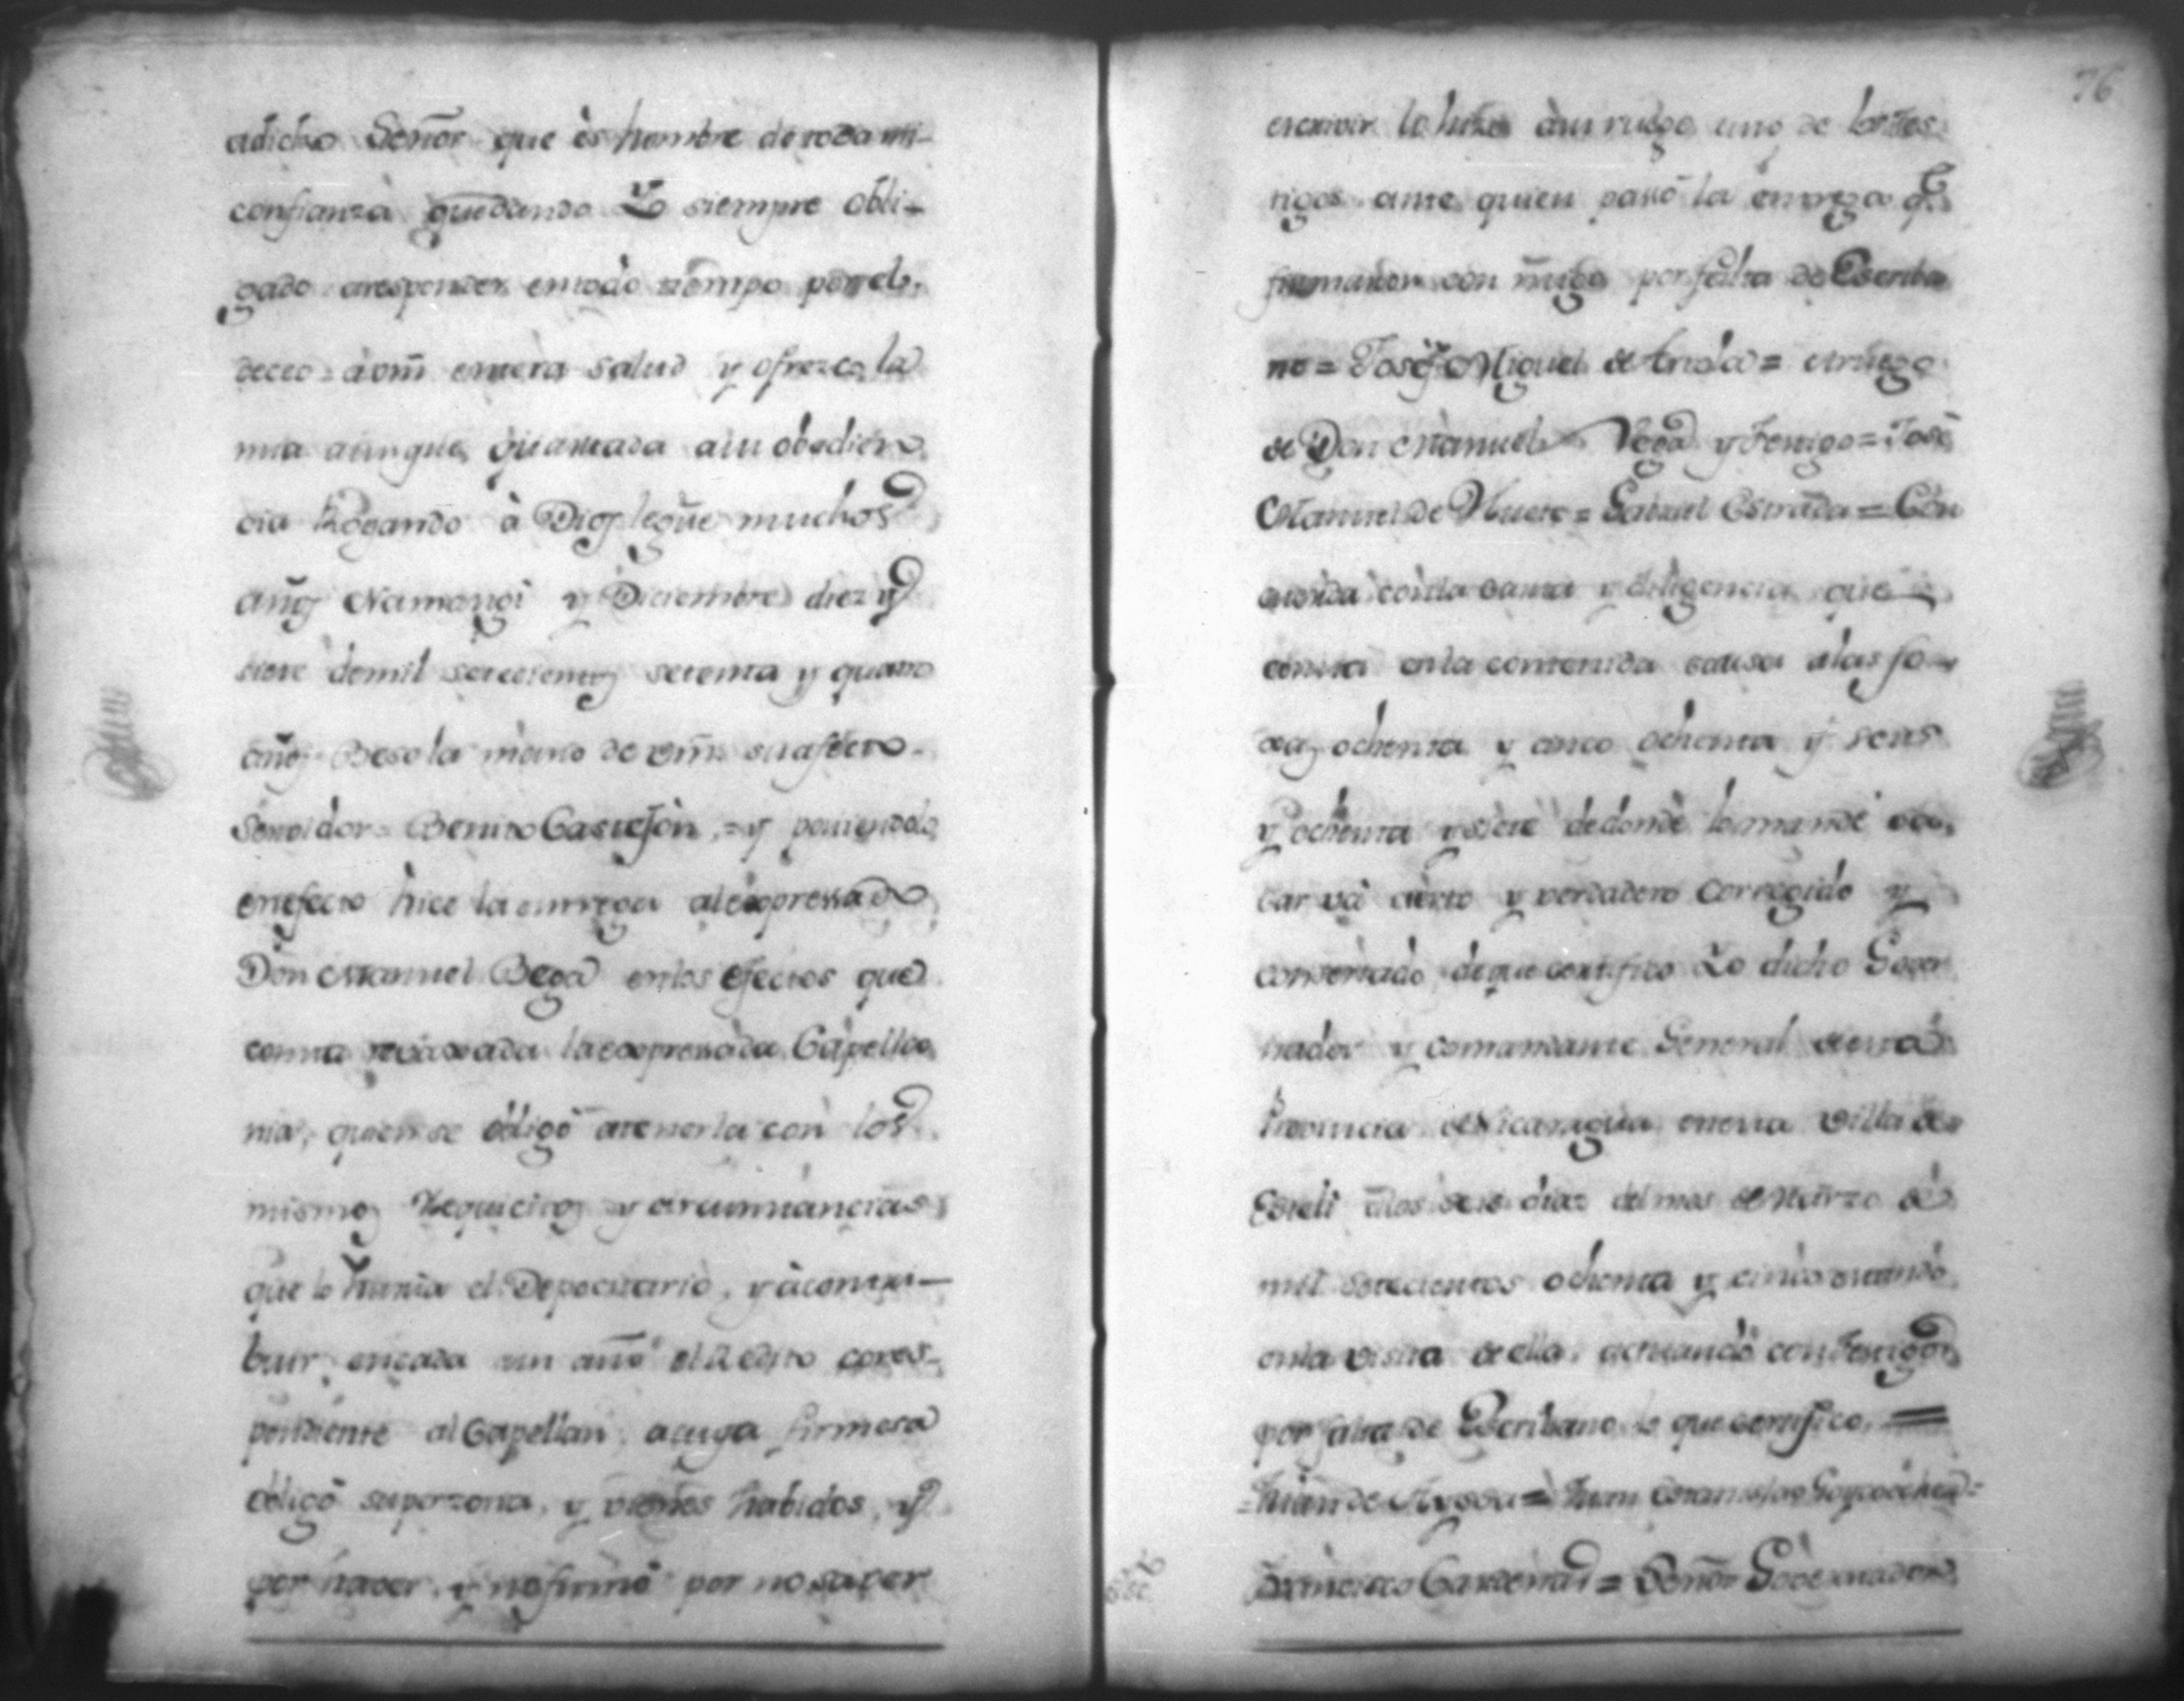 adicho Señor que ès hombre de toda mi-
confianza quedando Yo siempre obli-
gado aresponder entodo tiempo por el.
deceo à vm̃ entera salud y ofrezco la
mia aunque quartada a su obedien
cia Rogando à Dios le gũe muchos
años Namangi y Diciembre diez y
siete demil setecientos setenta y quatro
años Beso la mano de vm̃ su afecto
Servidor = Benito Castejòn = y poniendolo
enefecto hice la entrega al expressado
Don Manuel Bega enlos efectos que
consta la expressada Capella
nia, quien se obligò atenerla con los
mismos Requicitos y circunstancias
que lo hunia el Depocitario, y àcontri-
buir encada un año el redito corres-
pondiente al Capellan, acuya firmesa
obligò superzona, y vienes habidos, y
por haver, y nofirmò por no saver
76
escrivir lo hizo àsu ruego uno de los tes
tigos ante quien passò la entrega q̃.
firmaron con migo por falta de Escriba
no = Josef Miguel de = et ruego
de Don Manuel Vega y testigo = José
Manuel de = Estrada = Con
cuerda conla carta y diligencia que
consta enla contenida causa alas fo-
xas ochenta y cinco ochenta y seis
y ochenta y siete dedonde lo mandé sa
car và cierto y verdadero corregido y
consertado de que certifico Yo dicho Gover
nador y comandante General de esta
Provincia de Nicaragua en esta Villa de
Esteli à los seis dias del mes de Marzo de
mil setecientos ochenta y cinco estando
enla visita de ella actuando con testigos
por falta de Escribano lo que certifico. =
= Juan de Ayssa = Juan Goycoechea =
Francisco Cardenas = Señor Governador